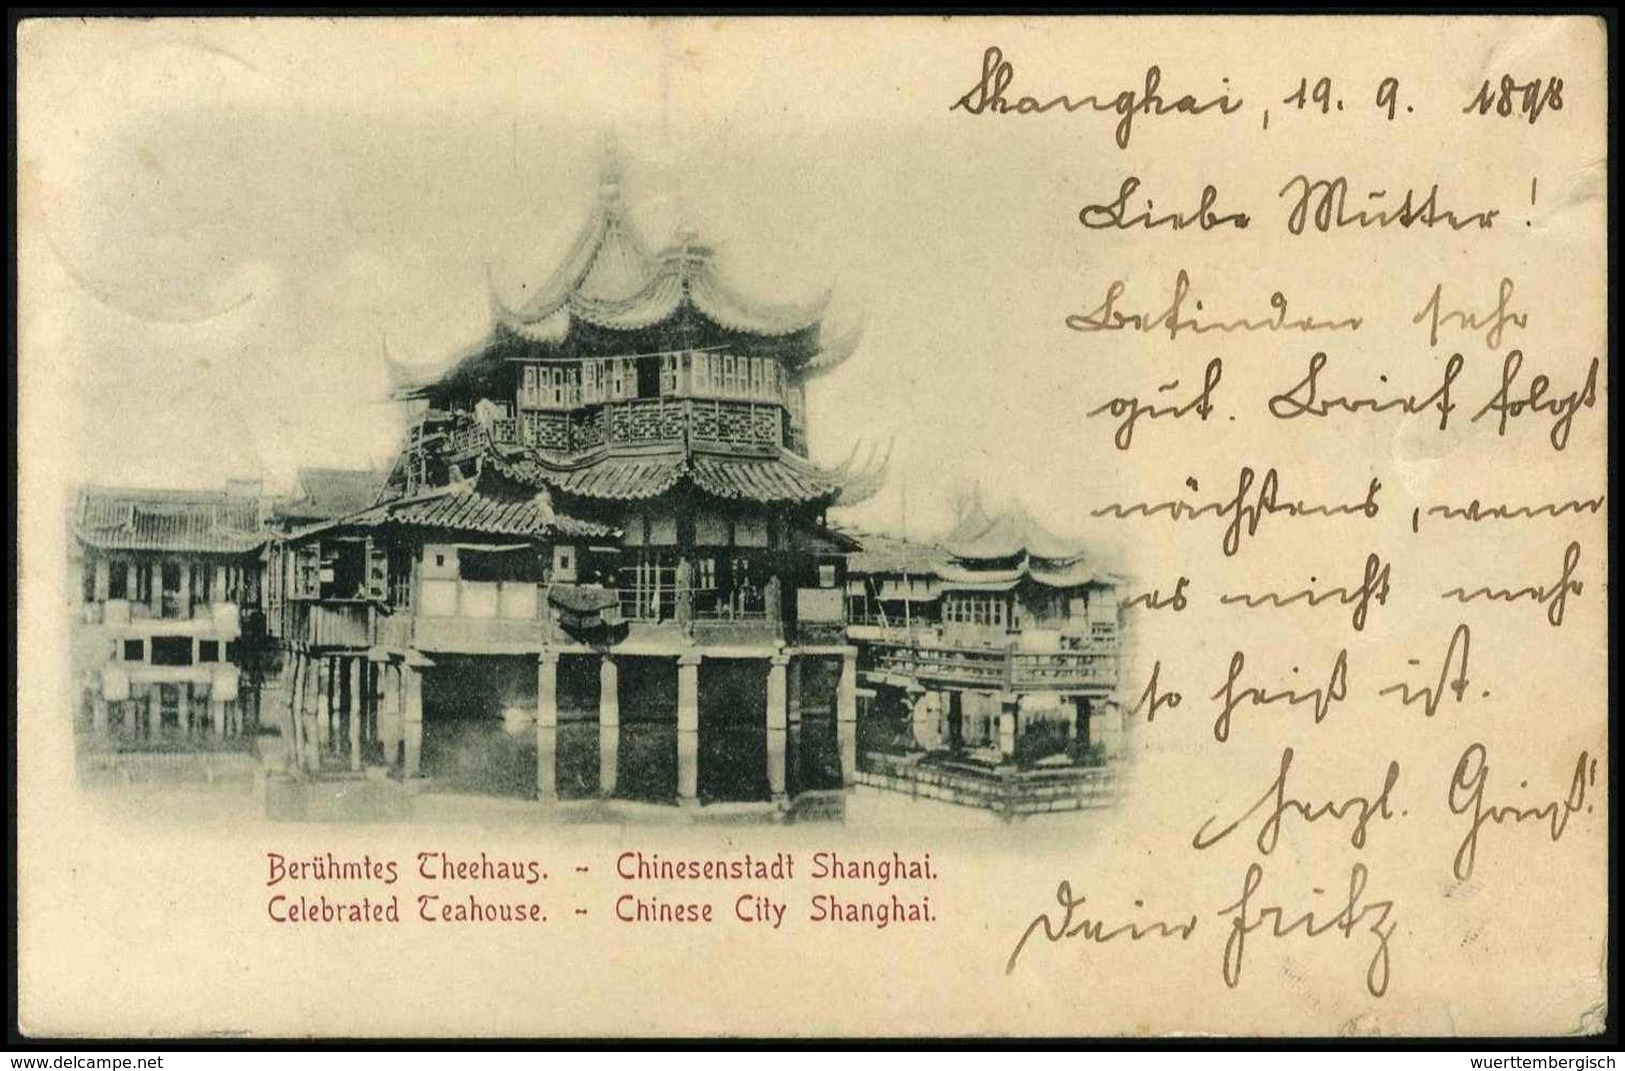 Shanghai, 19. 9. 1898
Liebe Mutter!
Befinden sehr
gut. Brief folgt
nächstens, wenn
es nicht mehr
so heiß ist.
Herzl. Gruß!
Dein Fritz
Berühmtes Theehaus. - Chinesenstadt Shanghai.
Celebrated Teahouse. - Chinese City Shanghai.
www.delcampe.net
wuerttembergisch